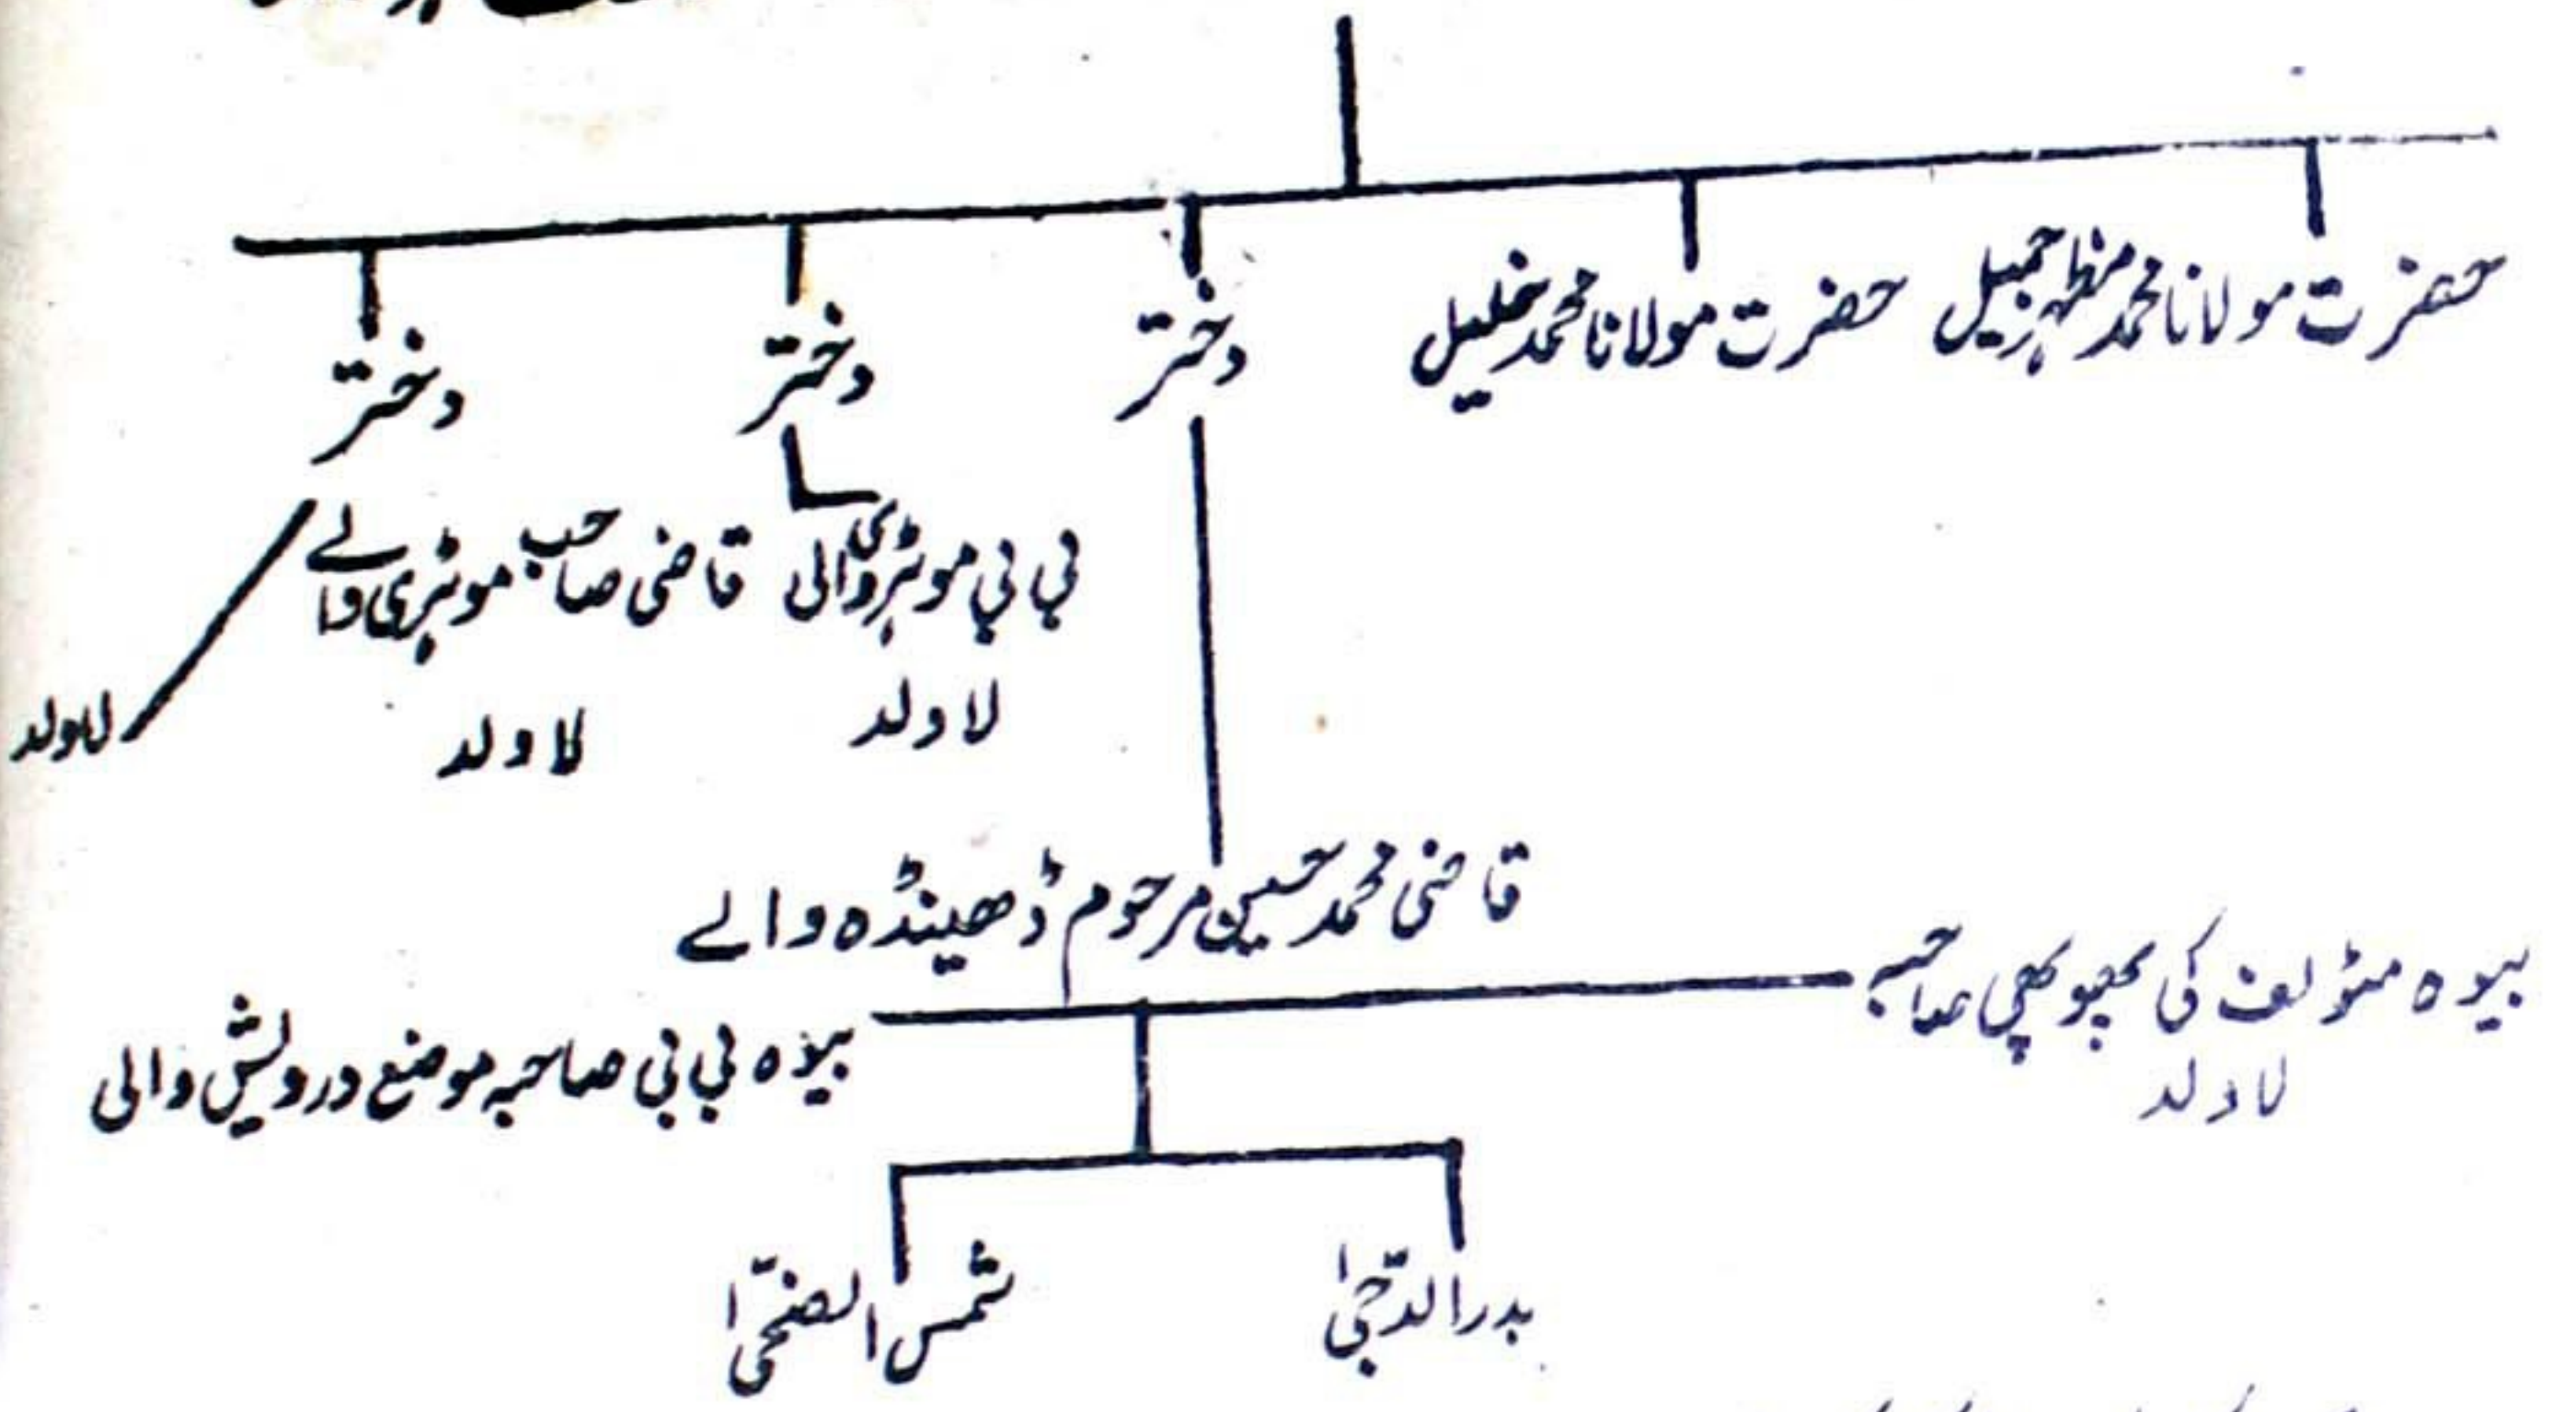 حضرت مولانا محمد مظہر جمیل
حضرت مولانا محمد خلیل
دختر
دختر
دختر
بی بی مونڑی والی
قاضی صاحب مونڑی والے
لاولد
لاولد
لاولد
قاضی محمد حسین مرحوم ڈھینڈہ والے
بیوہ مئولف کی پھوپھی صاحبہ
لاولد
بیوہ بی بی صاحبہ موضع درویش والی
بدر الدّجیٰ
شمس الضحّیٰ